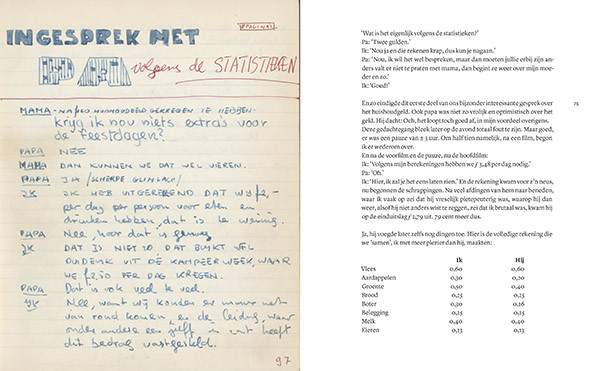 PAGINA 1
IN GESPREK MET
PAPA volgens de STATISTIEKEN
MAMA - NA f110 HUISHOUDGELD GEKREGEN TE HEBBEN -
kryg ik nou niets extra's voor
de feestdagen?
PAPA NEE
MAMA DAN KUNNEN WE DAT WEL VIEREN.
PAPA JA /SCHERPE GLIMLACH/
IK IK HEB UITGEREKEND DAT WY f2,-
per dag per persoon voor eten en
drinken hebben, dat is te weinig.
PAPA Nee, hoor dat is genoeg
IK DAT IS NIET ZO DAT BLYKT WEL
DUIDELYK UIT DE KAMPEERWEEK, WAAR
WE f2,50 PER DAG KREGEN.
PAPA Dat is ook veel te veel.
IK Nee, want wy konden er maar net
van rond komen, en de leiding, waar
onder andere een juff in zit heeft
dit bedrag vastgesteld.
97
'Wat is het eigenlijk volgens de statistieken?'
Pa: 'Twee gulden.'
Ik: 'Nou ja en die rekenen krap, dus kun je nagaan.'
Pa: 'Nou, ik wil het wel bespreken, maar dan moeten jullie erbij zijn an-
ders valt er niet te praten met mama, dan begint ze weer over mijn moe-
der en zo.'
Ik: 'Goed!'
En zo eindigde dit eerste deel van ons bijzonder interessante gesprek over
het huishoudgeld. Ook papa was niet zo vrolijk en optimistisch over het
geld. Hij dacht: Och, het loopt toch goed af, in mijn voordeel overigens.
Deze gedachtegang bleek later op de avond totaal fout te zijn. Maar goed,
er was een pauze van ± 3 uur. Om half tien namelijk, na een film, begon
ik er wederom over.
En na de voorfilm en de pauze, nu de hoofdfilm:
Ik: 'Volgens mijn berekeningen hebben we f 3,48 per dag nodig.'
Pa: 'Oh.'
Ik: 'Hier, ik zal je het eens laten zien.' En de rekening kwam voor z'n neus,
nu begonnen de schrappingen. Na veel afdingen van hem naar beneden,
waar ik vaak op zei dat hij vreselijk pietepeuterig was, waarop hij dan
weer, alsof hij niet anders wist te zeggen, zei dat ik brutaal was, kwam hij
op de einduitslag f 2,79 uit. 79 cent meer dus.
Ja, hij voegde later zelfs nog dingen toe. Hier is de volledige rekening die
we 'samen', ik met meer plezier dan hij, maakten:
Ik Hij
Vlees 0,60 0,60
Aardappelen 0,30 0,20
Groente 0,50 0,40
Brood 0,25 0,25
Boter 0,30 0,16
Belegging 0,25 0,15
Melk 0,40 0,40
Eieren 0,13 0,13
75